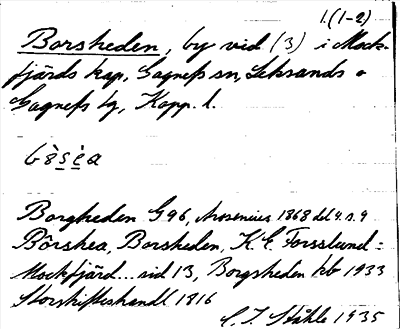 1.(1-2)
Borsheden, by vid (3) i Mock-
fjärds kap, Gagnefs sn, Leksands o
Gagnefs tg, Kopp. l.
Borgheden G96, Arosenius 1868 del 4. s. 9
Börshea, Borsheden, K. E. Forsslund:
Mockfjärd... sid 13, Borgsheden kb 1933
Storskifteshandl 1816
C. I. Ståhle 1935